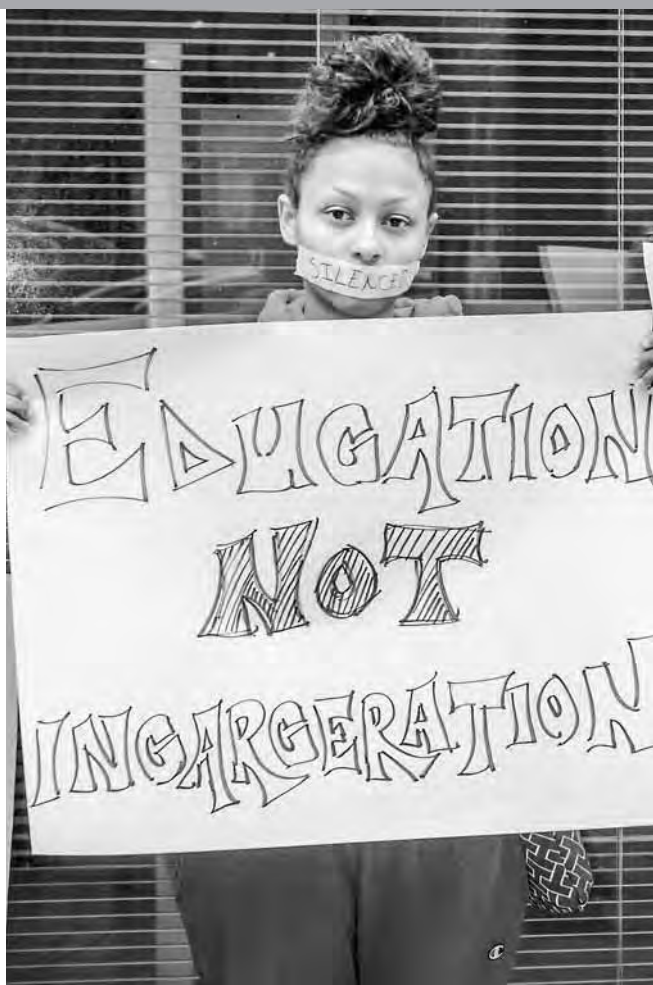 SILENCED
EDUCATION
NOT
INCARCERATION